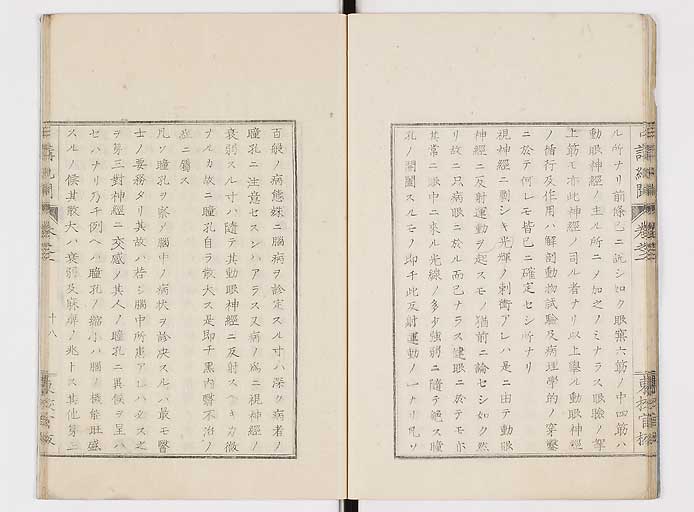 ル所ナリ前條已ニ説シ如ク眼窠六筋ノ中四筋ハ
動眼神經ノ主ル所ニ〆加之ノミナラス眼瞼ノ擧
上筋モ亦此神經ノ司ル者ナリ以上擧ル動眼神經
ノ循行及作用ハ解剖動物試驗及病理學的ノ穿鑿
ニ於テ何レモ皆已ニ確定セシ所ナリ
視神經ニ劇シキ光輝ノ刺衝アレハ是ニ由テ動眼
神經ニ反射運動ヲ起スモノ猶前ニ論セシ如ク然
リ故ニ只病眼ニ於ル而已ナラス健眼ニ於テモ亦
其常ニ眼中ニ來ル光線ノ多少強弱ニ隨テ絶ス瞳
孔ノ開闔スルモノ即チ此反射運動ノ一ナリ凡ソ
百般ノ病態殊ニ腦病ヲ診定スル寸ハ深ク病者ノ
瞳孔ニ注意セスンハアラス又病ノ爲ニ視神經ノ
衰弱スル寸ハ隨テ其動眼神經ニ反射ス キカ微
ナルカ故ニ瞳孔自ラ散大ス是即チ黒内翳不治ノ
症ニ屬ス
凡ソ瞳孔ヲ察〆腦中ノ病状ヲ診決スルハ最モ醫
士ノ要務タリ其故ハ若シ腦中所患アレハ必ス之
ヲ第三對神經ニ交感〆其人ノ瞳孔ニ異候ヲ呈ハ
セハナリ乃チ例ヘハ瞳孔ノ縮小ハ腦ノ機能旺盛
スルノ候其散大ハ衰弱及麻痺ノ兆トス其他第三
十八